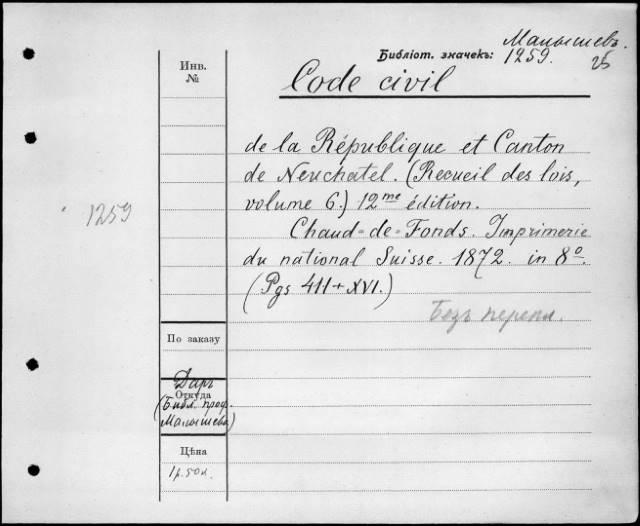 Малышевъ.
Библіот. значекъ: 1259.
25
Инв.
№
Code civil
de la République et Canton
de Neuchatel. (Recueil des lois,
volume 6.) 12me édition.
1259
Chaud-de-Fonds. Imprimerie
du national Suisse. 1872. in 8o.
(Pgs 411+XVI.)
Безъ перепл.
По заказу
Даръ
Откуда
(Библ. проф.
Малышева)
Цѣна
1р.50к.